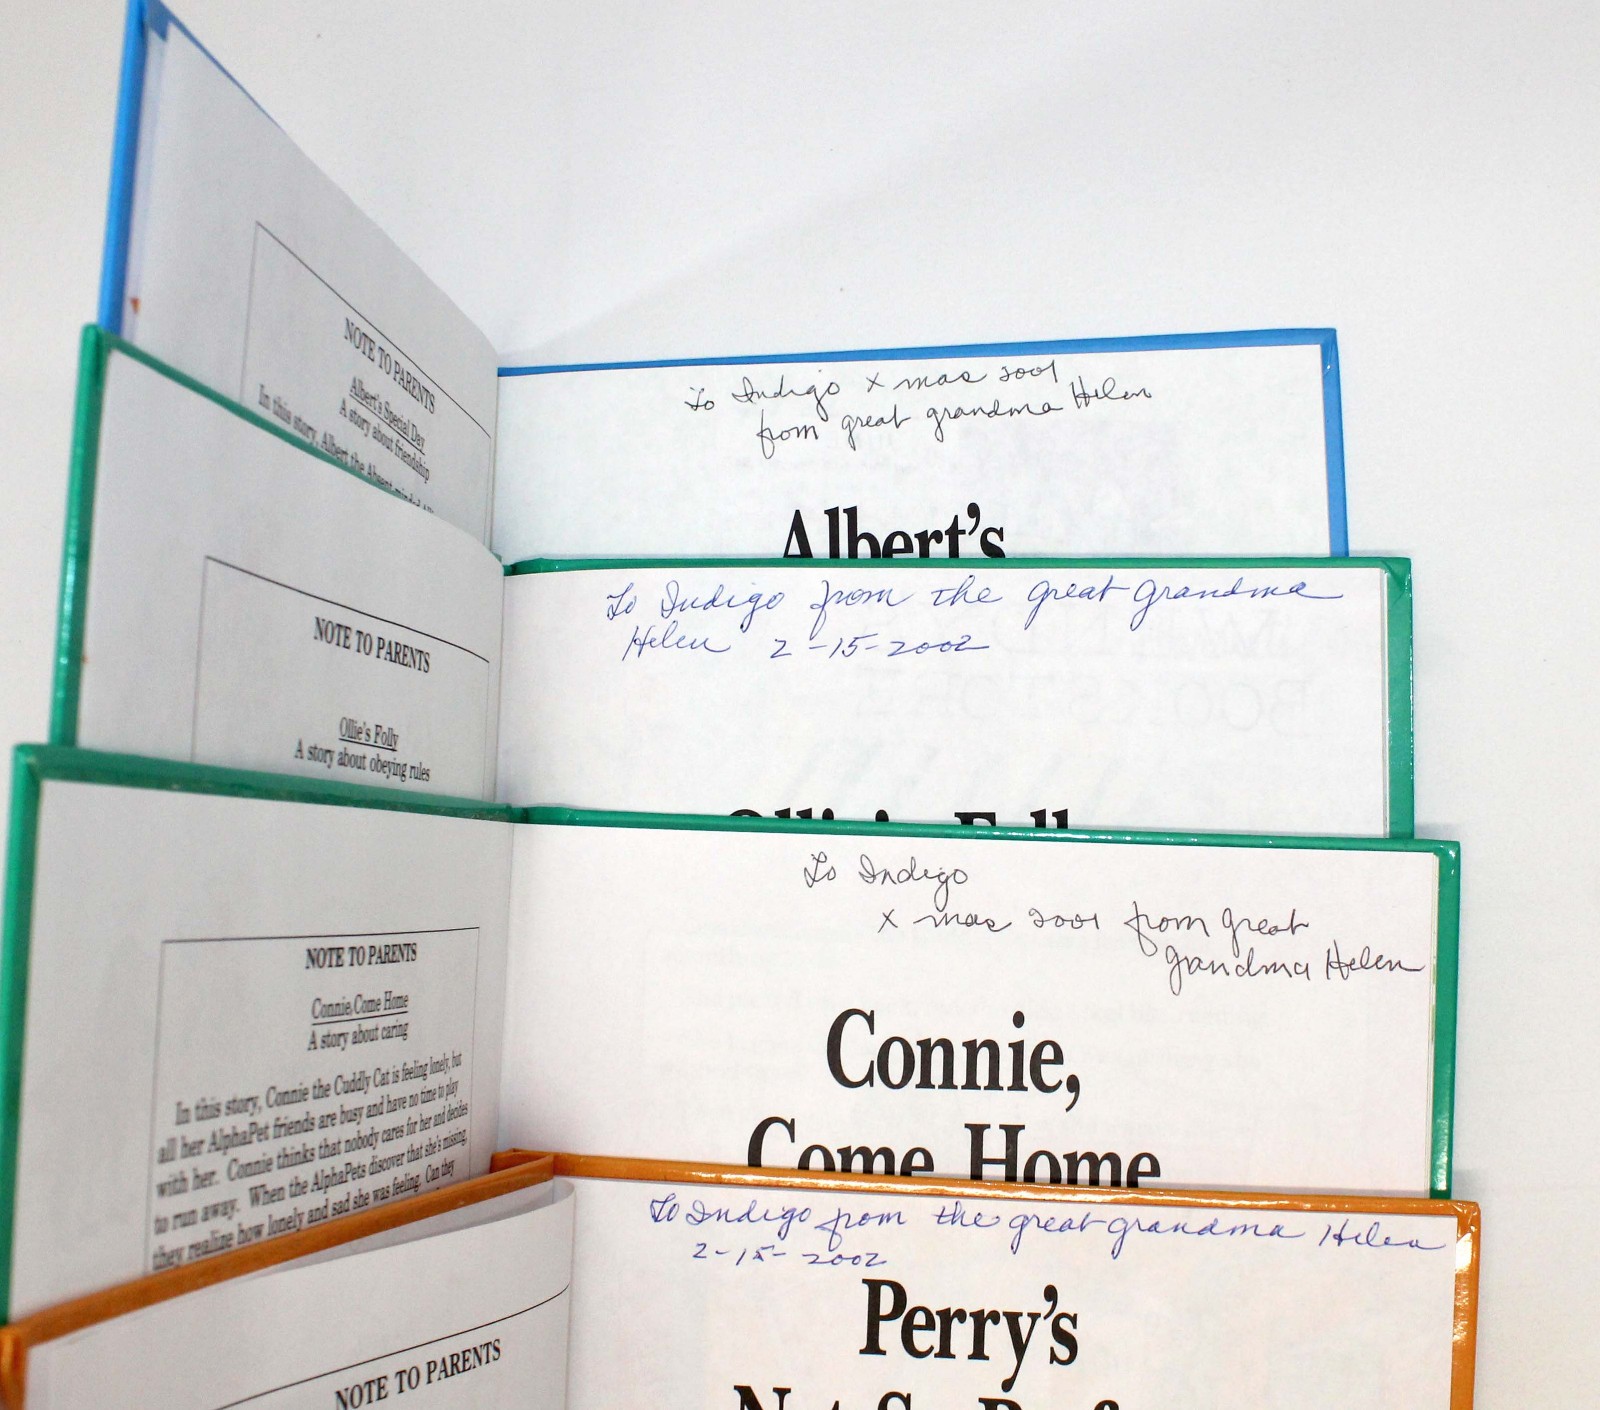 NOTE TO PARENTS
Albert's Special Day
A story about friendship
In this story, Albert the Absent-minded
To Indigo x mas 2001
from great grandma Helen
Albert's
NOTE TO PARENTS
Ollie's Folly
A story about obeying rules
To Indigo from the great grandma
Helen 2-15-2002
Ollie's Folly
NOTE TO PARENTS
Connie, Come Home
A story about caring
In this story, Connie the Cuddly Cat is feeling lonely, but
all her AlphaPet friends are busy and have no time to play
with her. Connie thinks that nobody cares for her and decides
to run away. When the AlphaPets discover that she's missing,
they realize how lonely and sad she was feeling. Can they
To Indigo
x mas 2001 from great
grandma Helen
Connie,
Come Home
NOTE TO PARENTS
To Indigo from the great grandma Helen
2-15-2002
Perry's
Not-So-Perfect